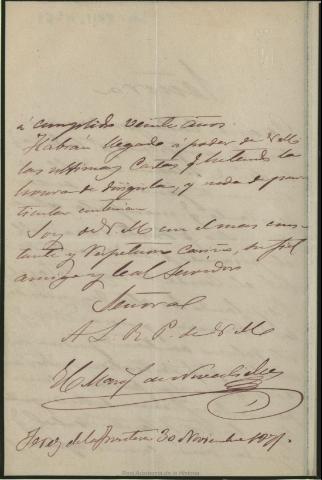 á cumplido veinte años.
Habrán llegado á poder de V M
las ultimas Cartas q.e tube la
honra de dirigirla, y nada de par
ticular contenian.
Soy de V M con el mas cons
tante y Perpetuo Cariño, su fiel
amigo y leal Servidor
Señora
A L R P. de V M
El Marq.s de
Jerez de la Frontera 30 Noviembre 1871.
Real Academia de la Historia